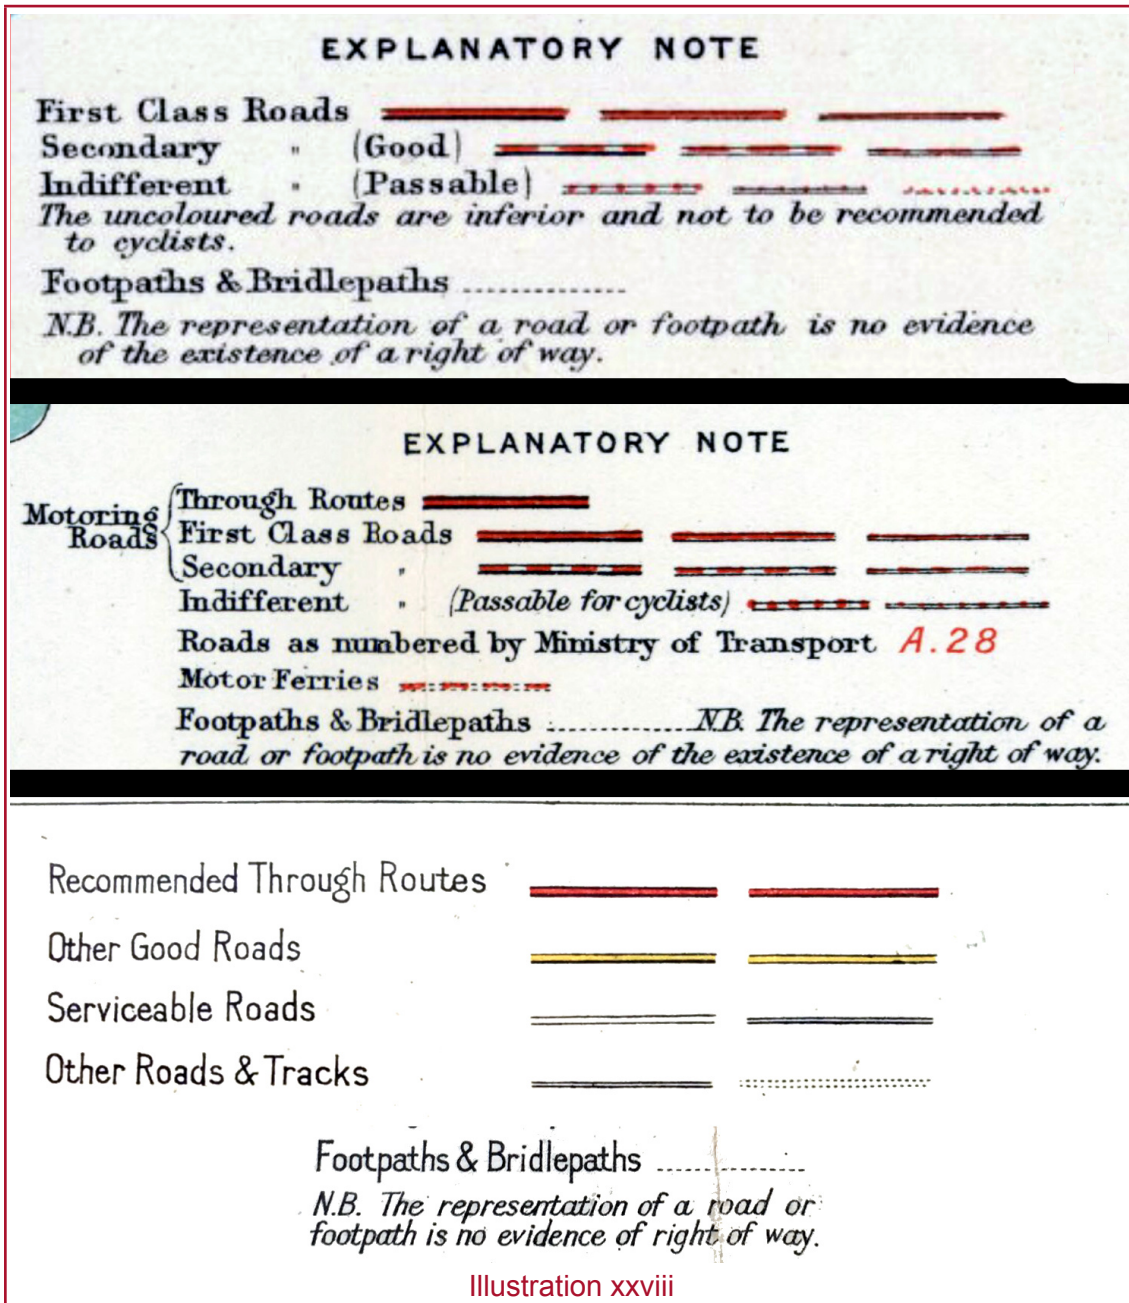 EXPLANATORY NOTE
First Class Roads
Secondary " (Good)
Indifferent " (Passable)
The uncoloured roads are inferior and not to be recommended
to cyclists.
Footpaths & Bridlepaths ..............
N.B. The representation of a road or footpath is no evidence
of the existence of a right of way.
EXPLANATORY NOTE
Motoring Roads
Through Routes
First Class Roads
Secondary "
Indifferent " (Passable for cyclists)
Roads as numbered by Ministry of Transport A.28
Motor Ferries
Footpaths & Bridlepaths ..............N.B. The representation of a
road or footpath is no evidence of the existence of a right of way.
Recommended Through Routes
Other Good Roads
Serviceable Roads
Other Roads & Tracks
Footpaths & Bridlepaths ..............
N.B. The representation of a road or
footpath is no evidence of right of way.
Illustration xxviii